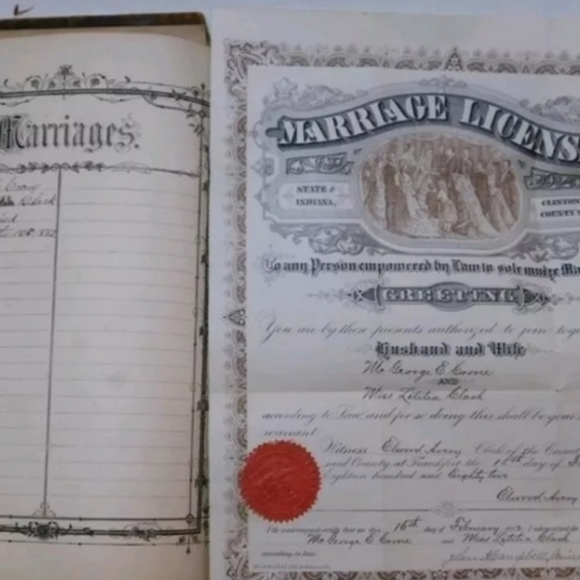 Marriages.
Clark
MARRIAGE LICENS
STATE OF
INDIANA,
CLINTON
COUNTY
To any Person empowered by Law to solemnize Ma
GREETING
You are by these presents authorized to join toge
Husband and Wife
Mr George E. Coone
AND
Miss Letitia Clark
according to Law, and for so doing this shall be your
warrant
Witness Elwood Avery Clerk of the
said County at Frankfort the 16th day of
Eighteen hundred and Eighty two
Elwood Avery
I the undersigned certify that on this 16th day of February
Mr George E. Coone and Miss Letitia Clark
according to law.
John A Campbell